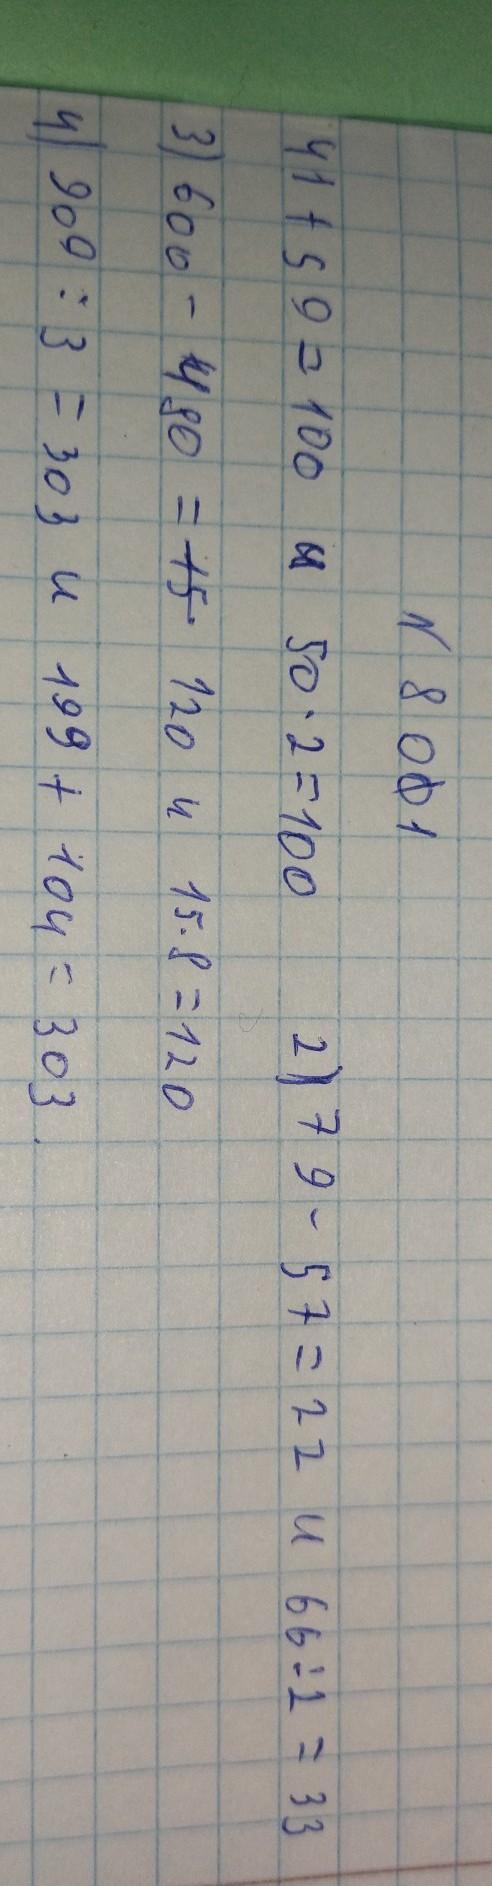 № 801
41 + 59 = 100 и 50 · 2 = 100 2) 79 - 57 = 22 и 66 : 2 = 33
3) 600 - 480 = 120 и 15 · 8 = 120
4) 909 : 3 = 303 и 199 + 104 = 303.